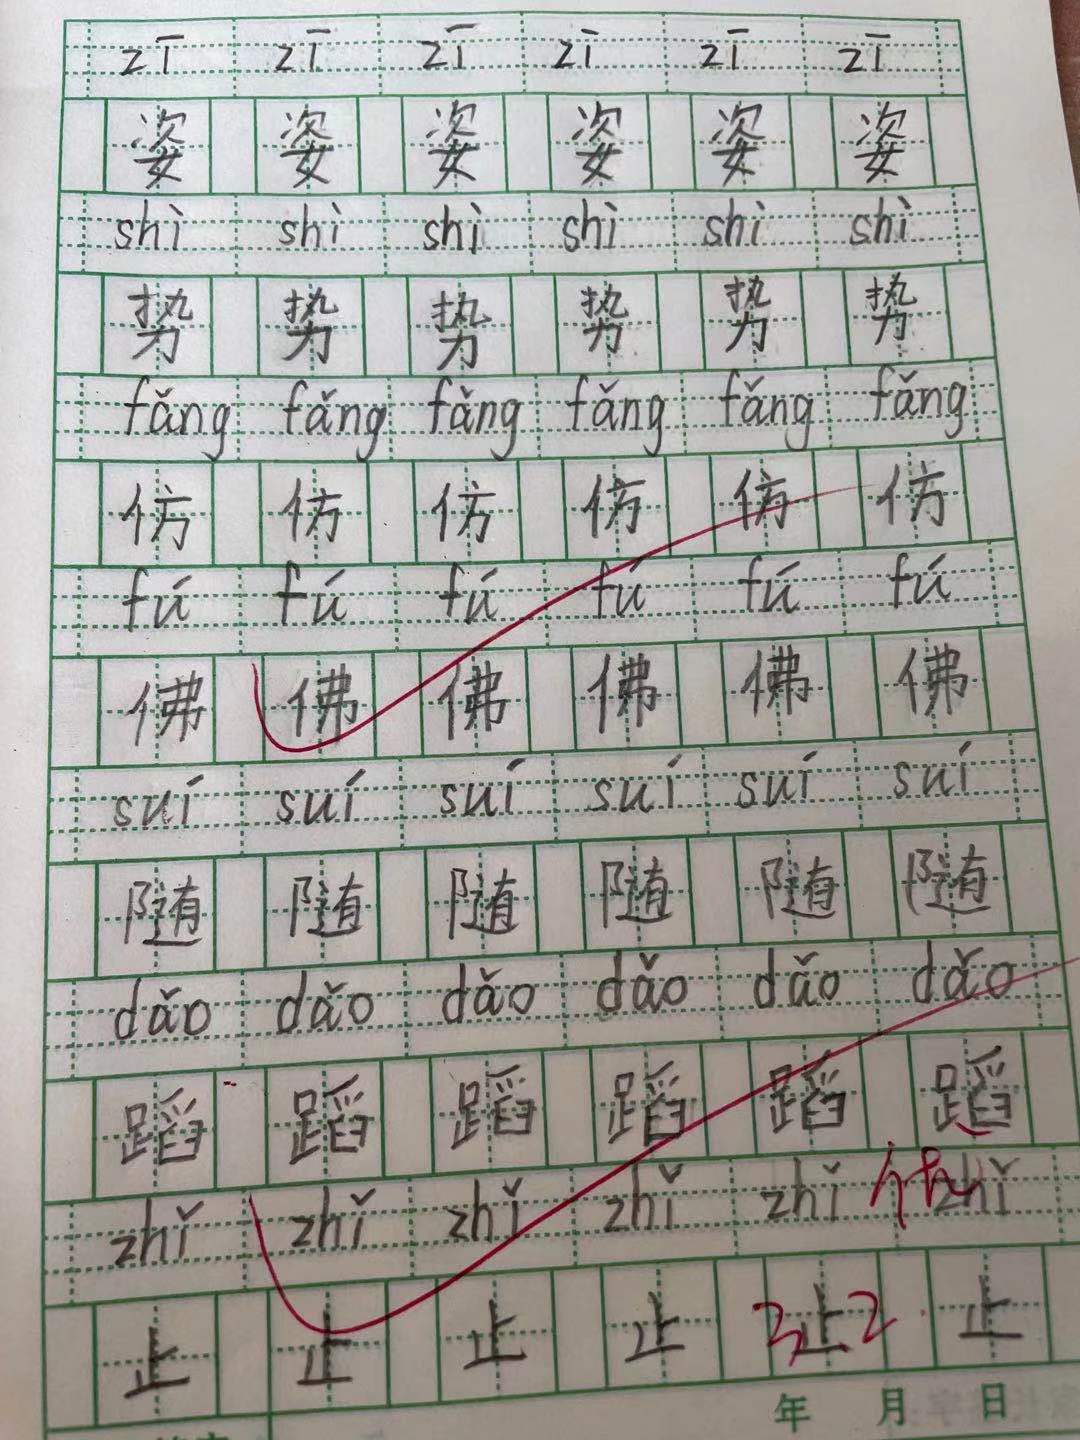 zī zī zī zī zī zī
姿 姿 姿 姿 姿 姿
shì shì shì shì shì shì
势 势 势 势 势 势
fǎng fǎng fǎng fǎng fǎng fǎng
仿 仿 仿 仿 仿 仿
fú fú fú fú fú fú
佛 佛 佛 佛 佛 佛
suí suí suí suí suí suí
随 随 随 随 随 随
dǎo dǎo dǎo dǎo dǎo dǎo
蹈 蹈 蹈 蹈 蹈 蹈
zhǐ zhǐ zhǐ zhǐ zhǐ zhǐ
止 止 止 止 止 止
年 月 日